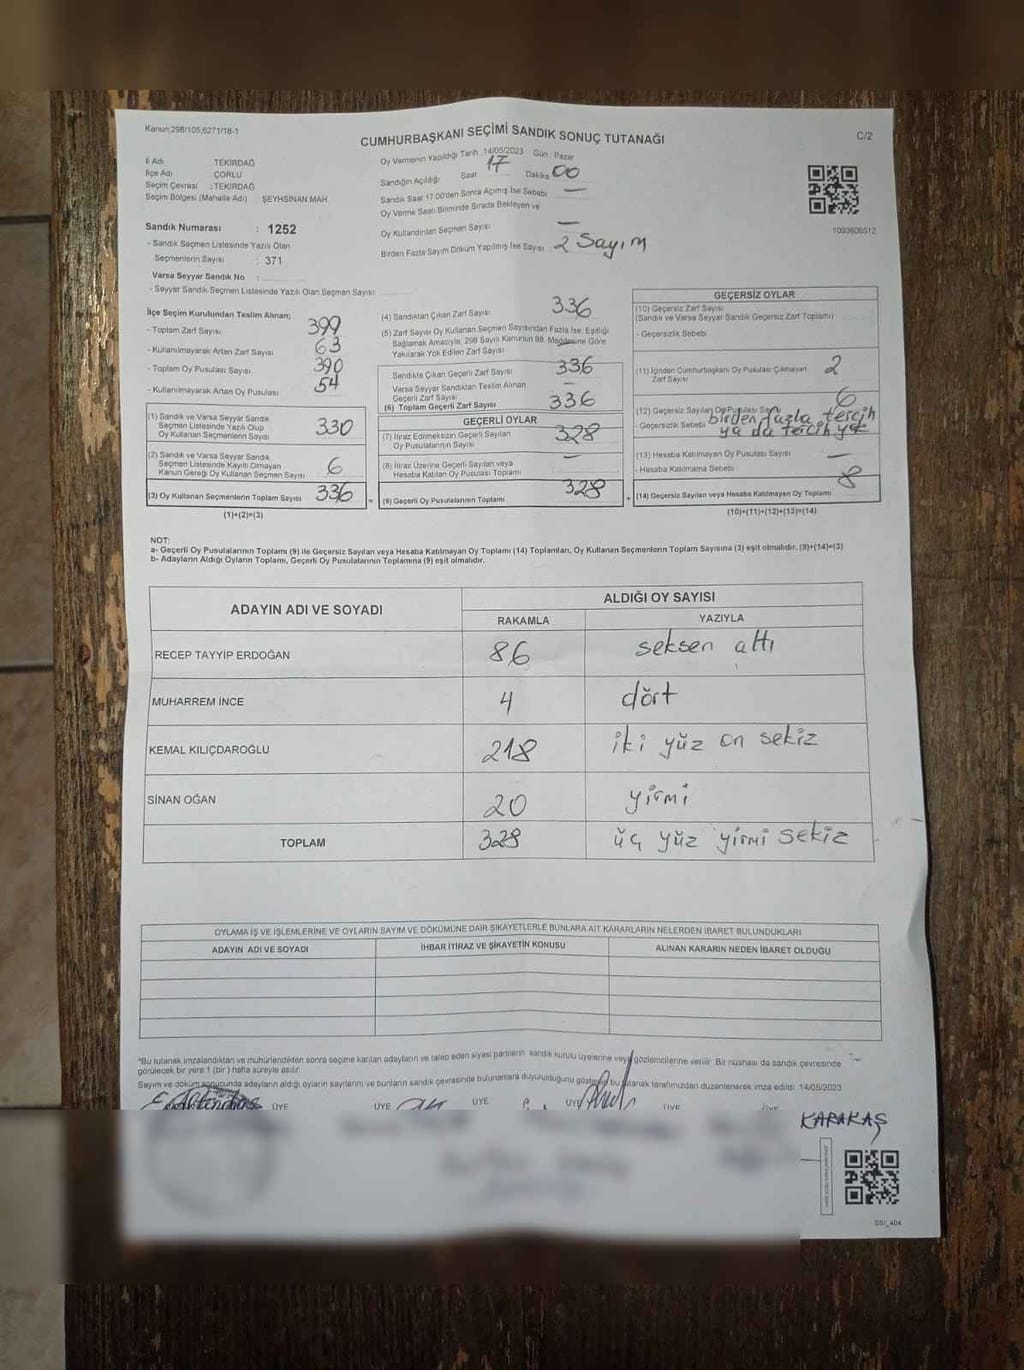 Kanun:298/105,6271/18-1
CUMHURBAŞKANI SEÇİMİ SANDIK SONUÇ TUTANAĞI
C/2
İl Adı : TEKİRDAĞ
İlçe Adı : ÇORLU
Seçim Çevresi : TEKİRDAĞ
Seçim Bölgesi (Mahalle Adı) ŞEYHSİNAN MAH.
Sandık Numarası : 1252
- Sandık Seçmen Listesinde Yazılı Olan
Seçmenlerin Sayısı : 371
Varsa Seyyar Sandık No :
- Seyyar Sandık Seçmen Listesinde Yazılı Olan Seçmen Sayısı:
Oy Vermenin Yapıldığı Tarih 14/05/2023 Gün Pazar
Sandığın Açıldığı Saat 17 Dakika 00
Sandık Saat 17:00'den Sonra Açılmış İse Sebebi —
Oy Verme Saati Bitiminde Sırada Bekleyen ve
Oy Kullandırılan Seçmen Sayısı —
Birden Fazla Sayım Döküm Yapılmış İse Sayısı 2 Sayım
1093606512
İlçe Seçim Kurulundan Teslim Alınan;
- Toplam Zarf Sayısı 399
- Kullanılmayarak Artan Zarf Sayısı 63
- Toplam Oy Pusulası Sayısı 390
- Kullanılmayarak Artan Oy Pusulası 54
(1) Sandık ve Varsa Seyyar Sandık
Seçmen Listesinde Yazılı Olup
Oy Kullanan Seçmenlerin Sayısı 330
(2) Sandık ve Varsa Seyyar Sandık
Seçmen Listesinde Kayıtlı Olmayan
Kanun Gereği Oy Kullanan Seçmen Sayısı 6
(3) Oy Kullanan Seçmenlerin Toplam Sayısı 336
(1)+(2)=(3)
(4) Sandıktan Çıkan Zarf Sayısı 336
(5) Zarf Sayısı Oy Kullanan Seçmen Sayısından Fazla İse, Eşitliği
Sağlamak Amacıyla, 298 Sayılı Kanunun 98. Maddesine Göre
Yakılarak Yok Edilen Zarf Sayısı
Sandıkta Çıkan Geçerli Zarf Sayısı 336
Varsa Seyyar Sandıktan Teslim Alınan
Geçerli Zarf Sayısı —
(6) Toplam Geçerli Zarf Sayısı 336
GEÇERLİ OYLAR
(7) İtiraz Edilmeksizin Geçerli Sayılan
Oy Pusulalarının Sayısı 328
(8) İtiraz Üzerine Geçerli Sayılan veya
Hesaba Katılan Oy Pusulası Toplamı —
= (9) Geçerli Oy Pusulalarının Toplamı 328 +
GEÇERSİZ OYLAR
(10) Geçersiz Zarf Sayısı
(Sandık ve Varsa Seyyar Sandık Geçersiz Zarf Toplamı)
- Geçersizlik Sebebi
(11) İçinden Cumhurbaşkanı Oy Pusulası Çıkmayan
Zarf Sayısı 2
(12) Geçersiz Sayılan Oy Pusulası Sayısı 6
- Geçersizlik Sebebi birden fazla tercih
ya da tercih yok
(13) Hesaba Katılmayan Oy Pusulası Sayısı —
- Hesaba Katılmama Sebebi
(14) Geçersiz Sayılan veya Hesaba Katılmayan Oy Toplamı 8
(10)+(11)+(12)+(13)=(14)
NOT:
a- Geçerli Oy Pusulalarının Toplamı (9) ile Geçersiz Sayılan veya Hesaba Katılmayan Oy Toplamı (14) Toplamları, Oy Kullanan Seçmenlerin Toplam Sayısına (3) eşit olmalıdır. (9)+(14)=(3)
b- Adayların Aldığı Oyların Toplamı, Geçerli Oy Pusulalarının Toplamına (9) eşit olmalıdır.
ADAYIN ADI VE SOYADI
ALDIĞI OY SAYISI
RAKAMLA YAZIYLA
RECEP TAYYİP ERDOĞAN 86 seksen altı
MUHARREM İNCE 4 dört
KEMAL KILIÇDAROĞLU 218 iki yüz on sekiz
SİNAN OĞAN 20 yirmi
TOPLAM 328 üç yüz yirmi sekiz
OYLAMA İŞ VE İŞLEMLERİNE VE OYLARIN SAYIM VE DÖKÜMÜNE DAİR ŞİKAYETLERLE BUNLARA AİT KARARLARIN NELERDEN İBARET BULUNDUKLARI
ADAYIN ADI VE SOYADI İHBAR İTİRAZ VE ŞİKAYETİN KONUSU ALINAN KARARIN NEDEN İBARET OLDUĞU
*Bu tutanak imzalandıktan ve mühürlendikten sonra seçime katılan adayların ve talep eden siyasi partilerin sandık kurulu üyelerine veya gözlemcilerine verilir. Bir nüshası da sandık çevresinde
görülecek bir yere 1 (bir) hafta süreyle asılır.
Sayım ve döküm sonucunda adayların aldığı oyların sayılarını ve bunların sandık çevresinde bulunanlara duyurulduğunu gösteren bu tutanak tarafımızdan düzenlenerek imza edildi. 14/05/2023
ÜYE ÜYE ÜYE ÜYE ÜYE ÜYE
KARAKAŞ
SSI_404